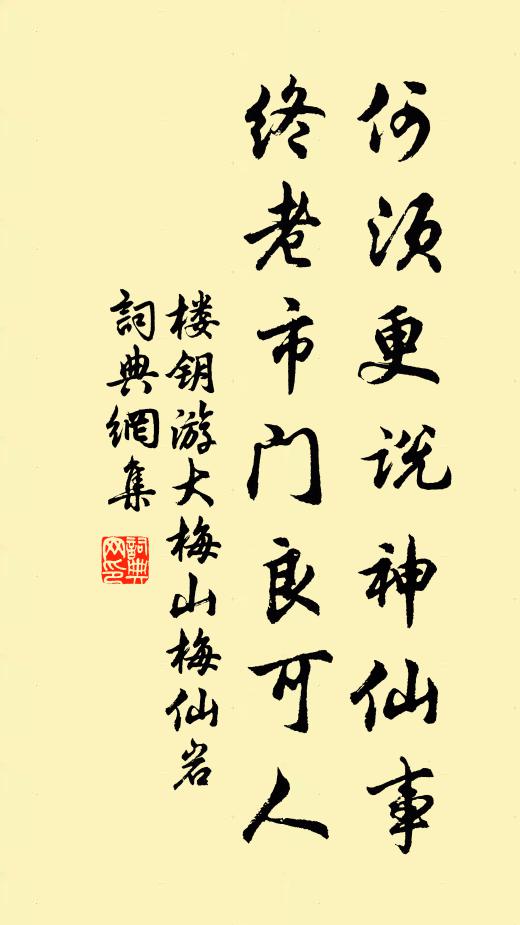 何须更说神仙事
终老市门良可人
楼钥游大梅山梅仙岩
詞典網集
詞典
网印